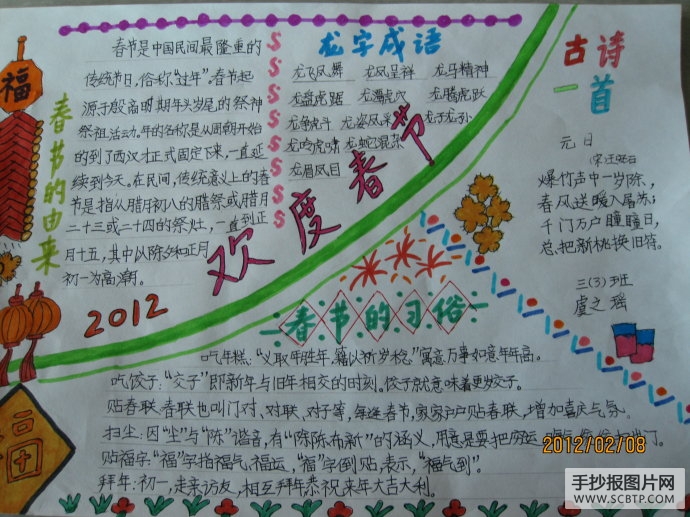 福
春节的由来
春节是中国民间最隆重的
传统节日,俗称"过年"。春节起
源于殷商时期年头岁尾的祭神
祭祖活动。年的名称是从周朝开始
的到了西汉才正式固定下来,一直延
续到今天。在民间,传统意义上的春
节是指从腊月初八的腊祭或腊月
二十三或二十四的祭灶,一直到正
月十五,其中以除夕和正月
初一为高潮。
龙字成语
龙飞凤舞 龙凤呈祥 龙马精神
龙盘虎踞 龙潭虎穴 龙腾虎跃
龙争虎斗 龙姿凤采 龙子龙孙
龙吟虎啸 龙蛇混杂
龙眉凤目
古诗
一首
元日
(宋)王安石
爆竹声中一岁除,
春风送暖入屠苏;
千门万户瞳瞳日,
总把新桃换旧符。
三(3)班
虞之瑶
欢度春节
2012
春节的习俗
吃年糕:"义取年胜年,籍以祈岁稔"寓意万事如意年年高。
吃饺子:"交子"即新年与旧年相交的时刻。饺子就意味着更岁交子。
贴春联:春联也叫门对、对联、对子等,每逢春节,家家户户贴春联,增加喜庆气氛。
扫尘:因"尘"与"陈"谐音,有"陈陈布新"的涵义,用意是要把
贴福字:"福"字指福气,福运,"福"字倒贴,表示,"福气到"。
拜年:初一,走亲访友,相互拜年恭祝来年大吉大利。
福
2012/02/08
手抄报图片网
WWW.SCBTP.COM